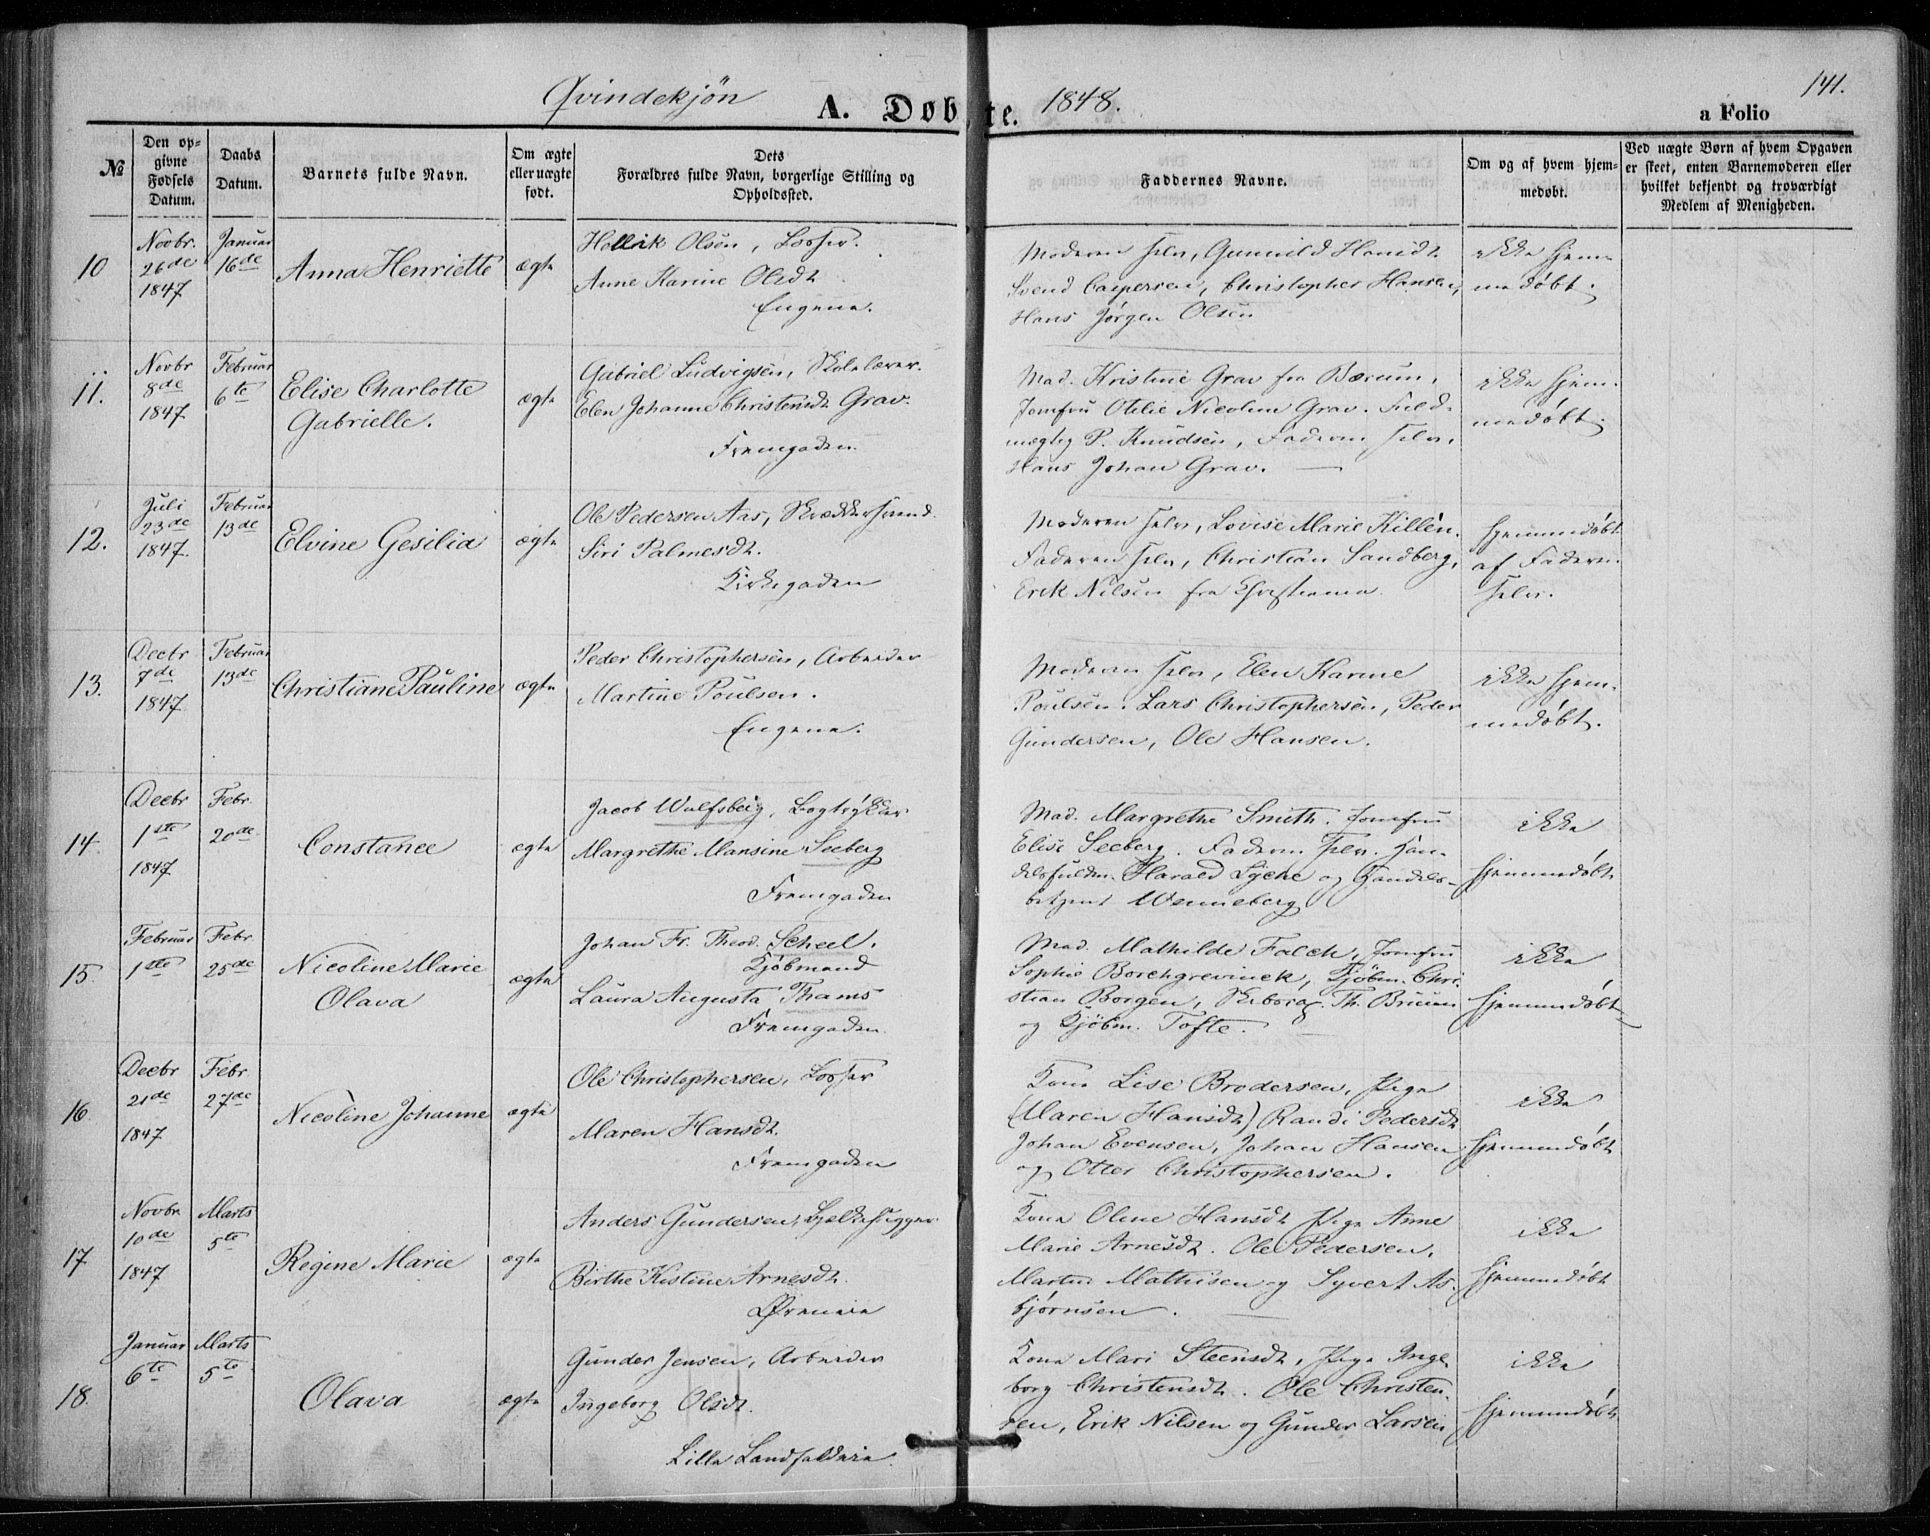 Qvindekjön
A. Døbte.
1848.
141.
a Folio
№
Den op-
givne
Fødsels
Datum.
Daabs
Datum.
Barnets fulde Navn.
Om ægte
eller uægte
født.
Dets
Forældres fulde Navn, borgerlige Stilling og
Opholdssted.
Faddernes Navne.
Om og af hvem hjem-
medøbt.
Ved uægte Børn af hvem Opgaven
er skeet, enten Barnemoderen eller
hvilket bekjendt og troværdigt
Medlem af Menigheden.
10
Novbr.
26de
1847
Januar
16de
Anna Henriette
ægte
Olsen, Losser.
Anne Karine Olsdt
Engene.
Moderen selv, Gunnild Hansdt
Svend Caspersen, Christopher Hansen,
Hans Jørgen Olsen
ikke hjem-
medøbt.
11.
Novbr
8de
1847
Februar
6te
Elise Charlotte
Gabrielle.
ægte
Gabriel Ludvigsen, Skolelærer.
Elen Johanne Christensdt Grav.
Fremgaden.
Mad. Kristine Grav fra Bærum,
Jomfru Otilie Nicoline Grav. Fuld-
mægtig P. Knudsen, Faderen selv,
Hans Johan Grav.
ikke hjem-
medøbt.
12.
Juli
23de
1847.
Februar
13de
Elvine Gesilia
ægte
Ole Pedersen Aas, Skræddersvend.
Siri Palmesdt.
Kirkegaden
Moderen selv, Lovise Marie Killén.
Faderen selv, Christian Sandberg,
Erik Nilsen fra Christiania
hjemmedøbt
af Faderen
selv.
13.
Decbr
7de
1847
Februar
13de
Christiane Pauline
ægte
Peder Christophersen, Arbeider
Martine Poulsen.
Engene.
Moderen selv, Elen Karine
Poulsen. Lars Christophersen, Peder
Gundersen, Ole Hansen.
ikke hjem-
medøbt.
14
Decbr
1ste
1847
Febr.
20de
Constance
ægte
Jacob Wulfsberg, Bogtrykker
Margrethe Mansine Seeberg
Fremgaden
Mad. Margrethe Smith. Jomfru
Elise Seeberg. Faderen selv. Han-
delsfuldm. Harald Lyche og Handels-
betjent Wenneberg
ikke
hjemmedøbt
15.
Februar
1ste
Febr.
25de
Nicoline Marie
Olava
ægte
Johan Fr. Theod. Scheel.
Kjøbmand
Laura Augusta Thams
Fremgaden.
Mad. Mathilde Falch, Jomfru
Sophie Borchgrevinck, Kjöbm. Chri-
stian Borgen, Th. Bruun
og Kjöbm. Tofte.
ikke
hjemmedøbt
16.
Decbr
21de
1847
Febr
27de
Nicoline Johanne
ægte
Ole Christophersen, Losser
Maren Hansdt.
Fremgaden
Kone Lise Brodersen, Pige
(Maren Hansdt) Randi Pedersdt
Johan Evensen, Johan Hansen
og Otter Christophersen.
ikke
hjemmedøbt
17
Novbr
10de
1847
Marts
5te
Regine Marie
ægte
Anders Gundersen, Bjelkehugger
Birthe Kistine Arnesdt.
Øreneie
Kone Olene Hansdt Pige Anne
Marie Arnesdt. Ole Pedersen.
Morten Mathisen og Syvert As-
bjørnsen.
ikke
hjemmedøbt
18.
Januar
6te
Marts
5te
Olava
ægte
Gunder Jensen, Arbeider
Ingeborg Olsdt.
Lille Landfalderie.
Kone Mari Steensdt, Pige Inge-
borg Christensdt. Ole Christen-
sen, Erik Nilsen og Gunder Larsen
ikke
hjemmedøbt